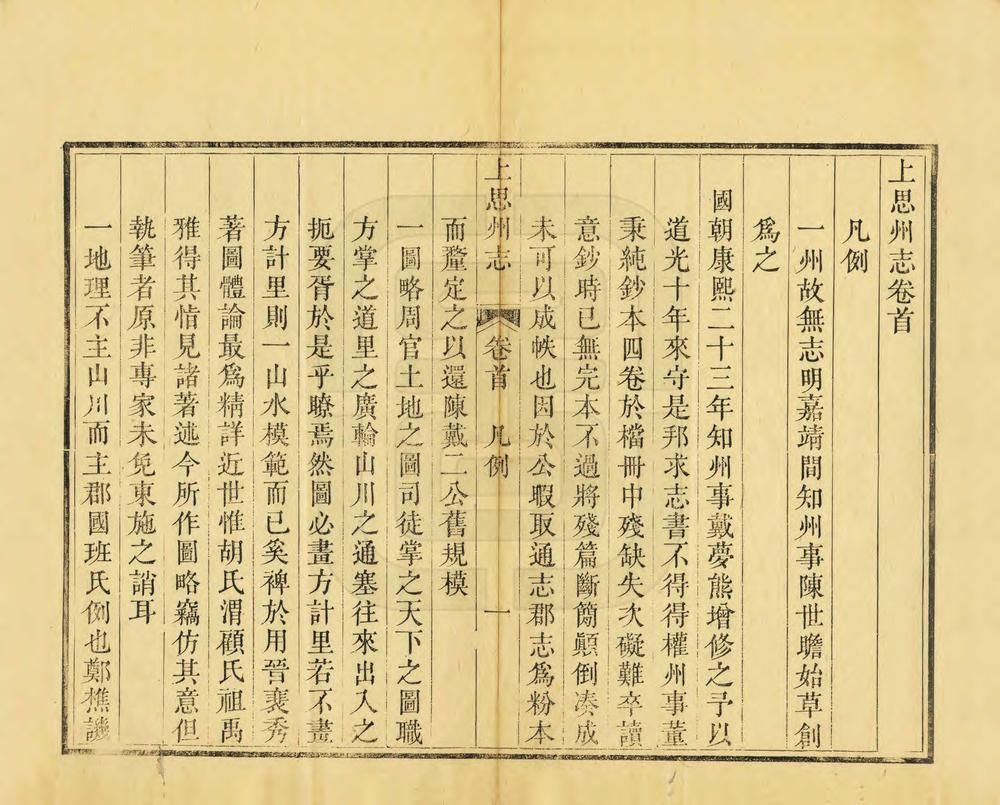 上思州志卷首
凡例
一州故無志明嘉靖間知州事陳世瞻始草創
爲之
國朝康熙二十三年知州事戴夢熊增修之予以
道光十年來守是邦求志書不得得權州事董
秉純鈔本四卷於檔冊中殘缺失次礙難卒讀
意鈔時已無完本不過將殘篇斷簡顛倒湊成
未可以成帙也因於公暇取通志郡志爲粉本
上思州志 卷首 凡例 一
而釐定之以還陳戴二公舊規模
一圖略周官土地之圖司徒掌之天下之圖職
方掌之道里之廣輪山川之通塞往來出入之
扼要胥於是乎瞭焉然圖必畫方計里若不畫
方計里則一山水模範而已奚裨於用晉裴秀
著圖體論最爲精詳近世惟胡氏渭顧氏祖禹
雅得其恉見諸著述今所作圖略竊仿其意但
執筆者原非專家未免東施之誚耳
一地理不主山川而主郡國班氏例也鄭樵譏